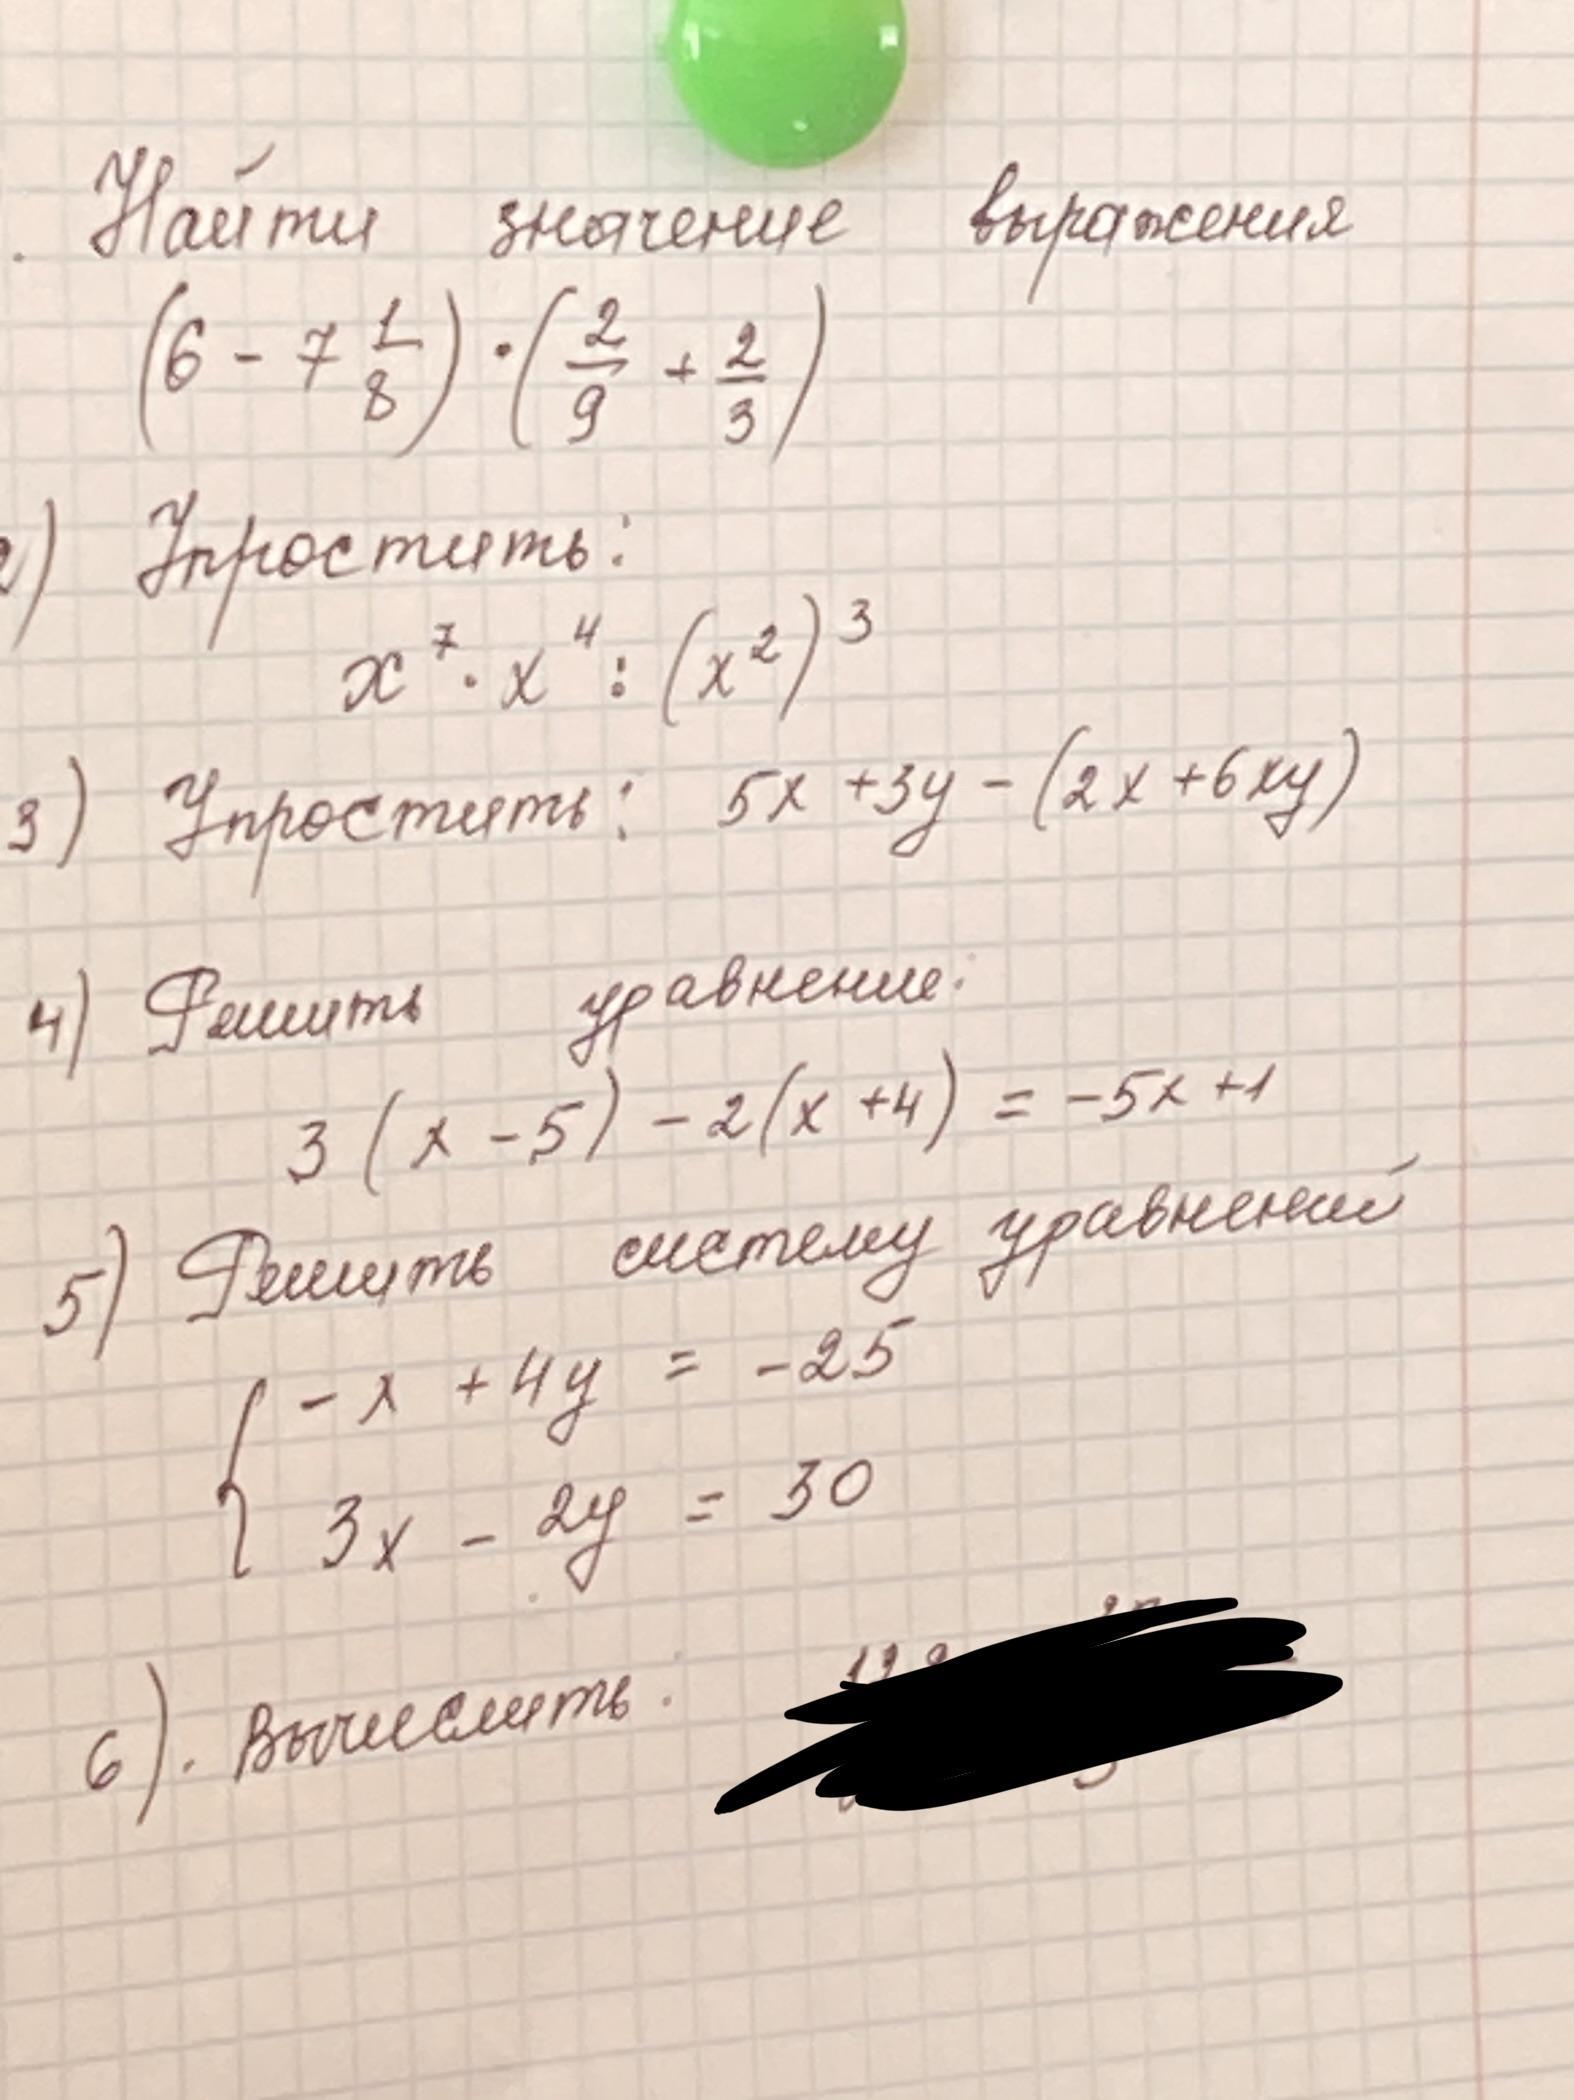 . Найти значение выражения
(6 - 7 1/8) · (2/9 + 2/3)
2) Упростить:
x⁷ · x⁴ : (x²)³
3) Упростить: 5x + 3y - (2x + 6xy)
4) Решить уравнение:
3(x - 5) - 2(x + 4) = -5x + 1
5) Решить систему уравнений
{ -x + 4y = -25
3x - 2y = 30
6). Вычислить: